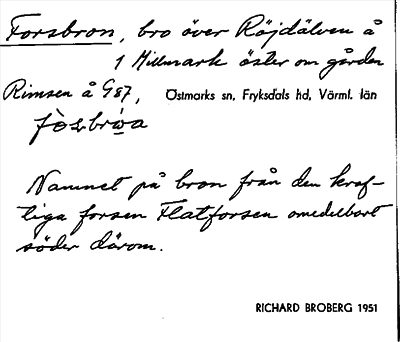 Forsbron, bro över Röjdälven å
1 Hillmark öster om gården
Rimsen å G87, Östmarks sn, Fryksdals hd, Värml. län
Namnet på bron från den kraf-
tiga forsen Flatforsen omedelbart
söder därom.
RICHARD BROBERG 1951